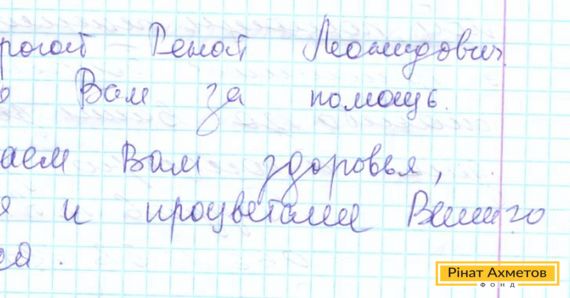 рогой Ренат Леонидович
о Вам за помощь.
аем Вам здоровья,
я и процветание Вашего
са.
Рінат Ахметов
ФОНД